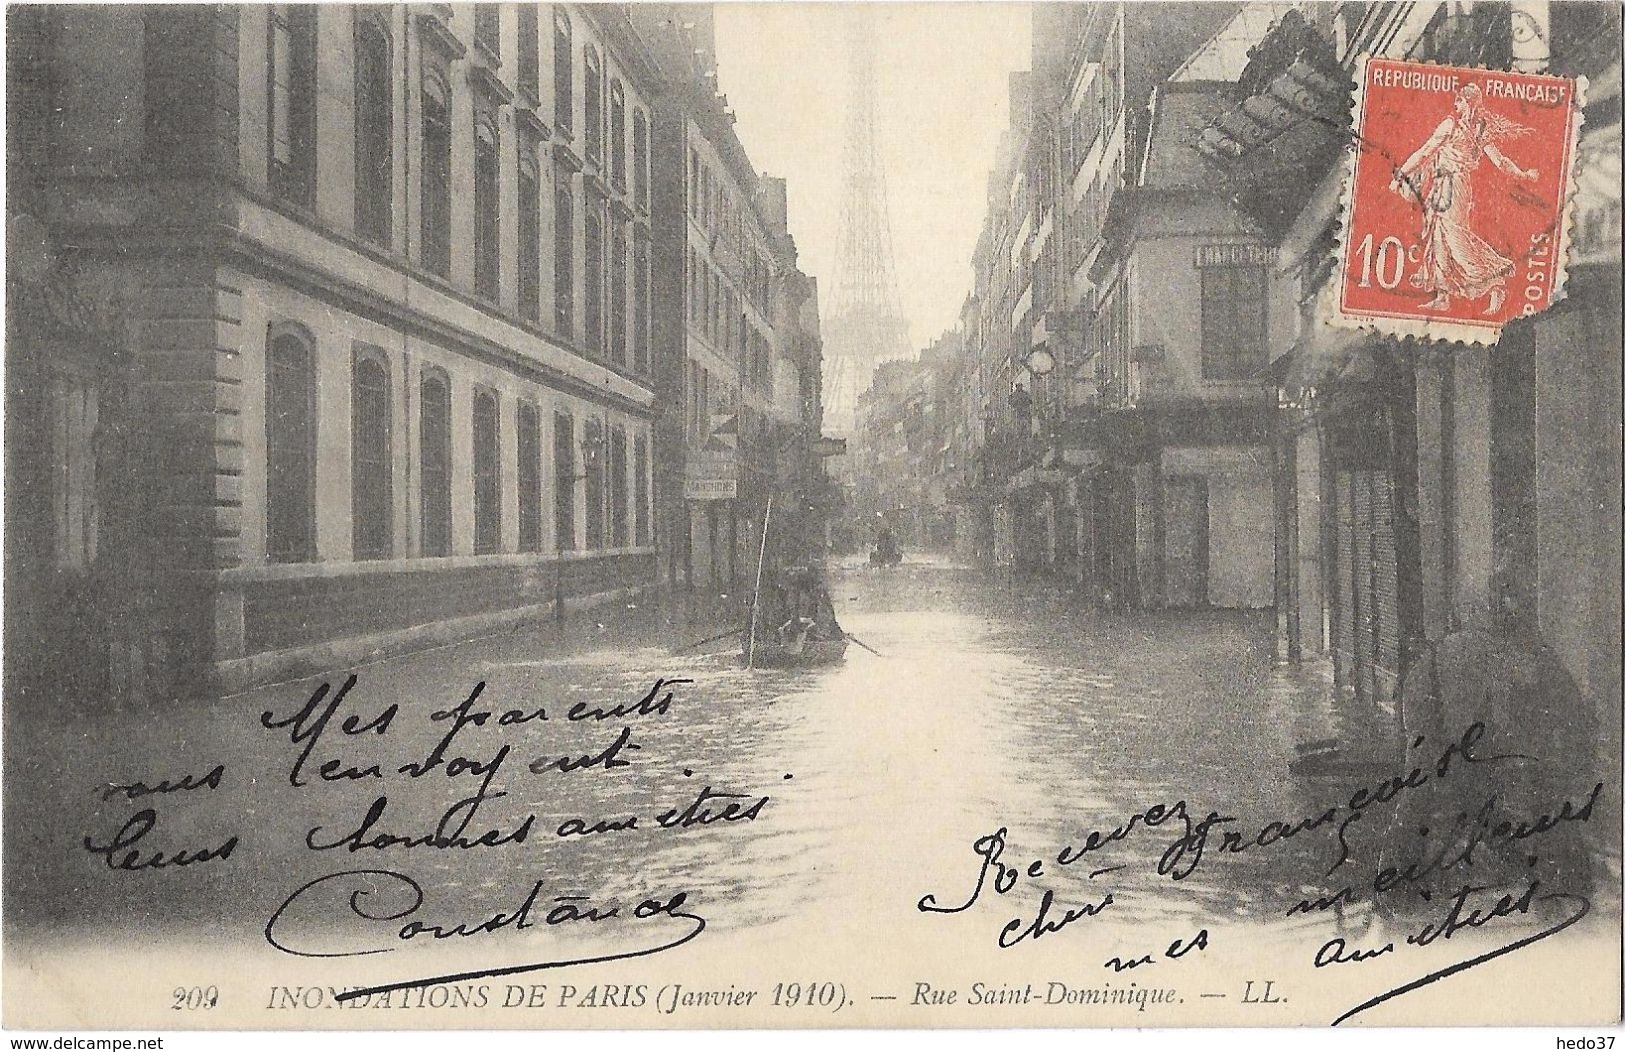 RÉPUBLIQUE FRANÇAISE
10c
POSTES
Mes parents
vous envoyent
leurs bonnes amitiés.
Constance
Recevez
chère Françoise
mes meilleurs
amitiés
209 INONDATIONS DE PARIS (Janvier 1910). — Rue Saint-Dominique. — LL.
www.delcampe.net
hedo37